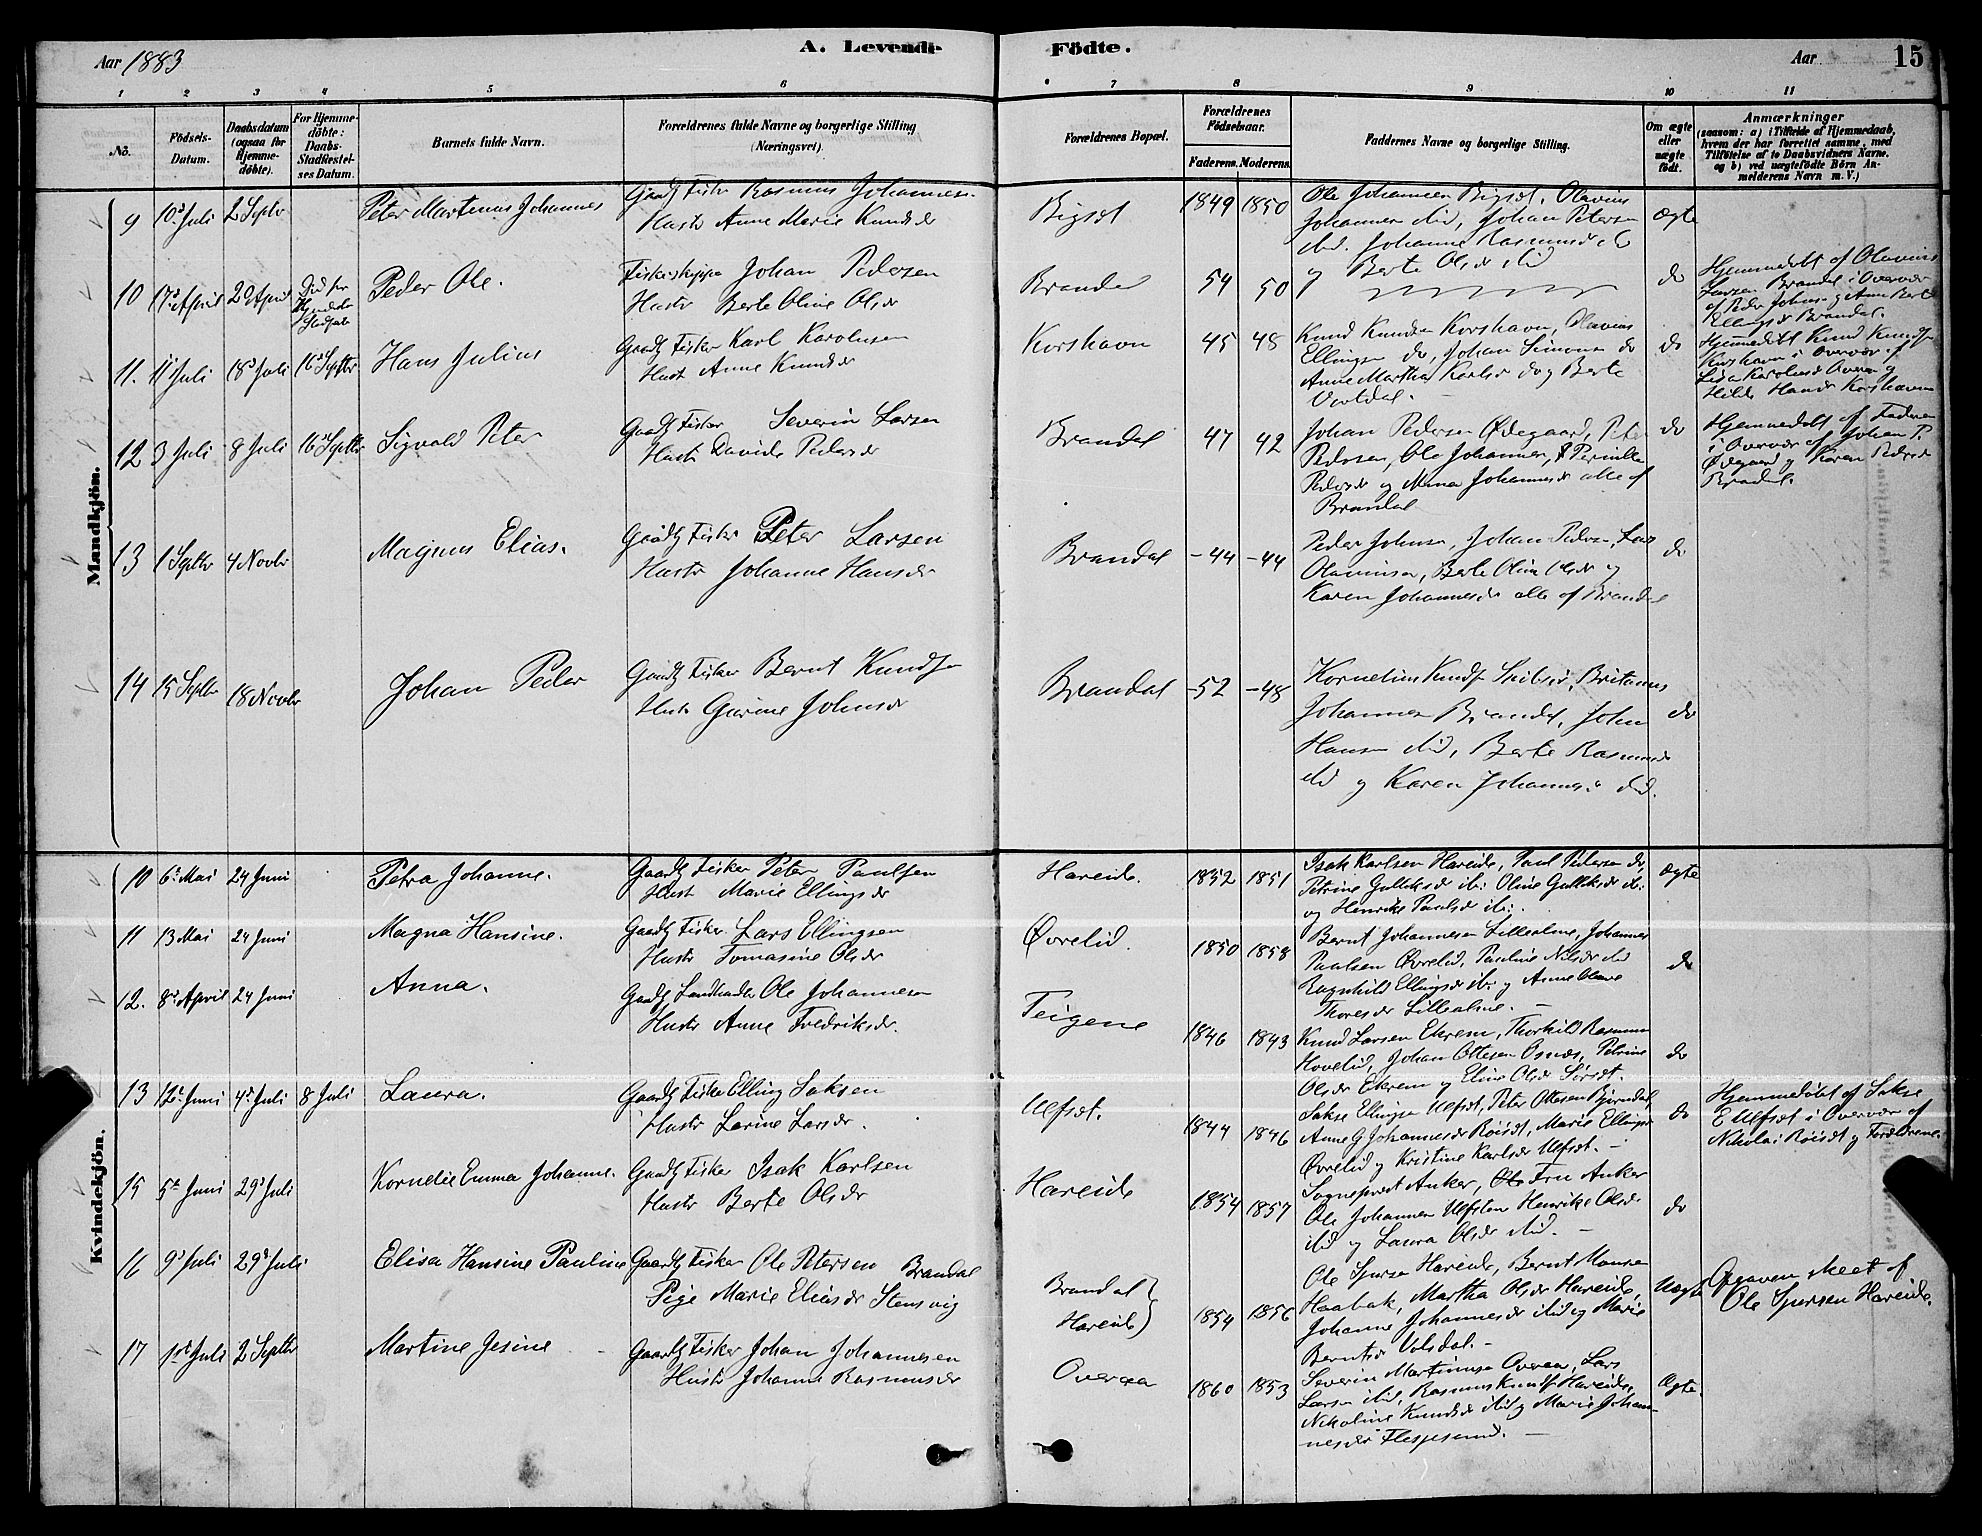 A. Levende Födte.
Aar 1883
Aar 15
1 2 3 4 5 6 6 7 8 9 10 11
No.
Födsels-Datum.
Daabsdatum (ogsaa for Hjemmedöbte).
For Hjemmedöbte: Daabs-Stadfæstelses Datum.
Barnets fulde Navn.
Forældrenes fulde Navne og borgerlige Stilling (Næringsvei).
Forældrenes Bopæl.
Forældrenes Födselsaar.
Faderens. Moderens.
Faddernes Navne og borgerlige Stilling.
Om ægte eller uægte födt.
Anmærkninger
(saasom: a) i Tilfælde af Hjemmedaab, hvem der har forrettet samme, med Tilföielse af to Daabsvidners Navne, og b) ved uægtefödte Börn Anmelderens Navn m. V.)
Mandkjön.
9 10de Juli 2 Septbr Peter Martinus Johannes
Gaardb Fisker Rasmus Johannesen
Hustr Anne Marie Knudsdr
Bigset 1849 1850
Ole Johannsen Bigset, Olavius
Johannsen ibid, Johan Petersen
ibid. Johanne Rasmusdr ib
og Berte Olsdr ibid
Ægte
10 17de April 29 April
Peder Ole.
Fiskeskipper Johan Pedersen
Hustr Berte Oline Olsdr
Brandal 54 50
do
Hjemmedöbt af Olavius
Larsen Brandal i Overvær
af Peder Johns. og Ane Berte
Ellingsdr Brandal.
11. 11te Juli 18de Juli 16 Septbr Hans Julius
Gaardb Fisker Karl Karolusen
Hust Anne Knudsdr
Korshavn 45 48
Knud Knudsen Korshavn, Olavius
Ellingsen do, Johan Simonsen do
Anne Martha Karlsdr do og Berte
do
Hjemmedöbt Knud Knudsen
Korshavn i Overvær af
12 3 Juli 8 Juli 16 Septbr Sigvald Peter
Gaardb Fisker Severin Larsen
Hustr Davide Pedersdr
Brandal 47 42
Johan Pedersen Ødegaard, Peter
Pedersen, Ole Johannsen, Pernille
Pedersdr og Nanna Johannesdr alle af
Brandal
do
Hjemmedöbt af Faderen
i Overvær af Johan P.
Ødegaard og Karen Pedersdr
Brandal.
13 1 Septbr 4 Novbr Magnus Elias.
Gaardb Fisker Peter Larsen
Hustr Johanne Hansdr
Brandal -44 -44
Peder Johnsen, Johan Pedersen, Lars
Olavinusen, Berte Oline Olsdr og
Karen Johannesdr alle af Brandal
do
14 15 Septbr 18 Novbr Johan Peder
Gaardb Fisker Bernt Knudsen
Hustr Gurine Johnsdr
Brandal -52 -48
Kornelius Knudsen
Johannsen Brandal, John
Hansen ibid, Berte Rasmusdr
ibid og Karen Johannesdr ibid.
do
Kvindekjön.
10 6te Mai 24 Juni Petra Johanne.
Gaardb Fisker Peter Paulsen
Hust Marie Ellingsdr
Hareide. 1852 1851
Isak Karlsen Hareide, Paul Pedersen do,
Petrine Gulliksdr ib: Oline Gulliksdr ib:
og Henrike Paulsdr ib:.
Ægte
11 13 Mai 24 Juni Magna Hansine.
Gaardb Fisker Lars Ellingsen
Hustr Tomasine Olsdr
Øvrelid. 1850 1858
Bernt Johannesen Lilleolme, Johannes
Paulsen Øvrelid, Pauline Nilsdr ibid
Ragnhild Ellingsdr ib: og Anne Olave
Thoresdr Lilleolme. –
do
12. 8de April 24 Juni Anna.
Gaardb Landhandler Ole Johannesen
Hustr Anne Fredriksdr.
Teigene 1846 1843
Knud Larsen Ekrem, Thorkild Rasmussen
Hovelid, Johan Ottesen Osnæs, Petrine
Olsdr Ekrem og Eline Olsdr
do
13 12te Juni 4de Juli 8 Juli Laura.
Gaardb Fisker Elling Saksen
Hustr Larine Larsdr.
Ulfset. 1844 1846
Sakse Ellingsen Ulfset, Peter Ottesen Bjørndal,
Anne G Johannesdr Röiset, Marie Ellingsdr
Øvrelid og Kristine Karlsdr Ulfset. –
do
Hjemmedöbt af Sakse
E Ulfset i Overvær af
Nikolai Röiset og Forældrene.
15 5te Juni 29de Juli Kornelie Emma Johanne.
Gaardb Fisker Isak Karlsen
Hustr Berte Olsdr
Hareide 1854 1857
Sogneprest Anker, Fru Anker
Ole Johannsen Ulfsten Henrike Olsdr
ibid og Laura Olsdr ibid. –
do
16 9de Juli 29de Juli Elisa Hansine Pauline
Gaardb Fisker Ole Petersen Brandal
Pige Marie Eliasdr Stensvig
Brandal }
Hareide }
1854 1856
Ole Spersen Hareide, Bernt Monsen
Haabak, Martha Olsdr Hareide,
Johanne Johannesdr ibid og Marie
Berntsdr Volsdal. –
Uægte
Opgaven skeet af
Ole Spersen Hareide.
17 1ste Juli 2 Septbr Martine Jesine
Gaardb Fisker Johan Johannesen
Hustr Johanne Rasmusdr
Overaa 1860 1853
Severin Martinusen Overaa, Lars
Larsen ibid, Rasmus Knudsen Hareide,
Nikoline Knudsdr ibid og Marie Johan-
nesdr Flesjesund. –
Ægte.